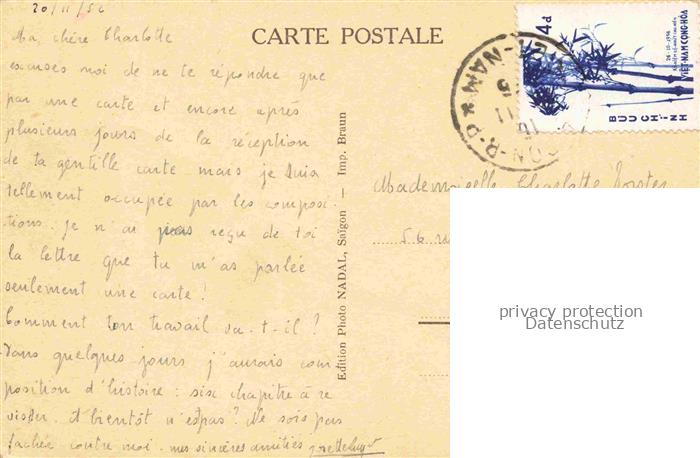 20/11/56
Ma chère Charlotte
CARTE POSTALE
excuses moi de ne te répondre que
par une carte et encore après
plusieurs jours de la réception
de ta gentille carte mais je suis
tellement occupée par les composi-
tions. Je n'ai pas reçu de toi
la lettre que tu m'as parlée
seulement une carte !
Comment ton travail va-t-il ?
Dans quelques jours j'aurais com
position d'histoire : six chapitre à re
visser. A bientôt n'est pas ? Ne sois pas
fachée contre moi. mes sincères amitiés
Edition Photo NADAL, Saïgon — Imp. Braun
4d
26-10-1956
VIỆT-NAM CỘNG-HÒA
BƯU CHÍNH
NAM
Mademoiselle Charlotte
56
privacy protection
Datenschutz